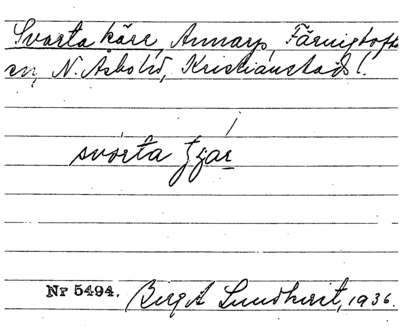 Svarta kärr, Annarp, Färingtofta
sn, N. Åsbo hd, Kristianstads l.
svarta tjar
Nr 5494. Birgit Lundkvist, 1936.